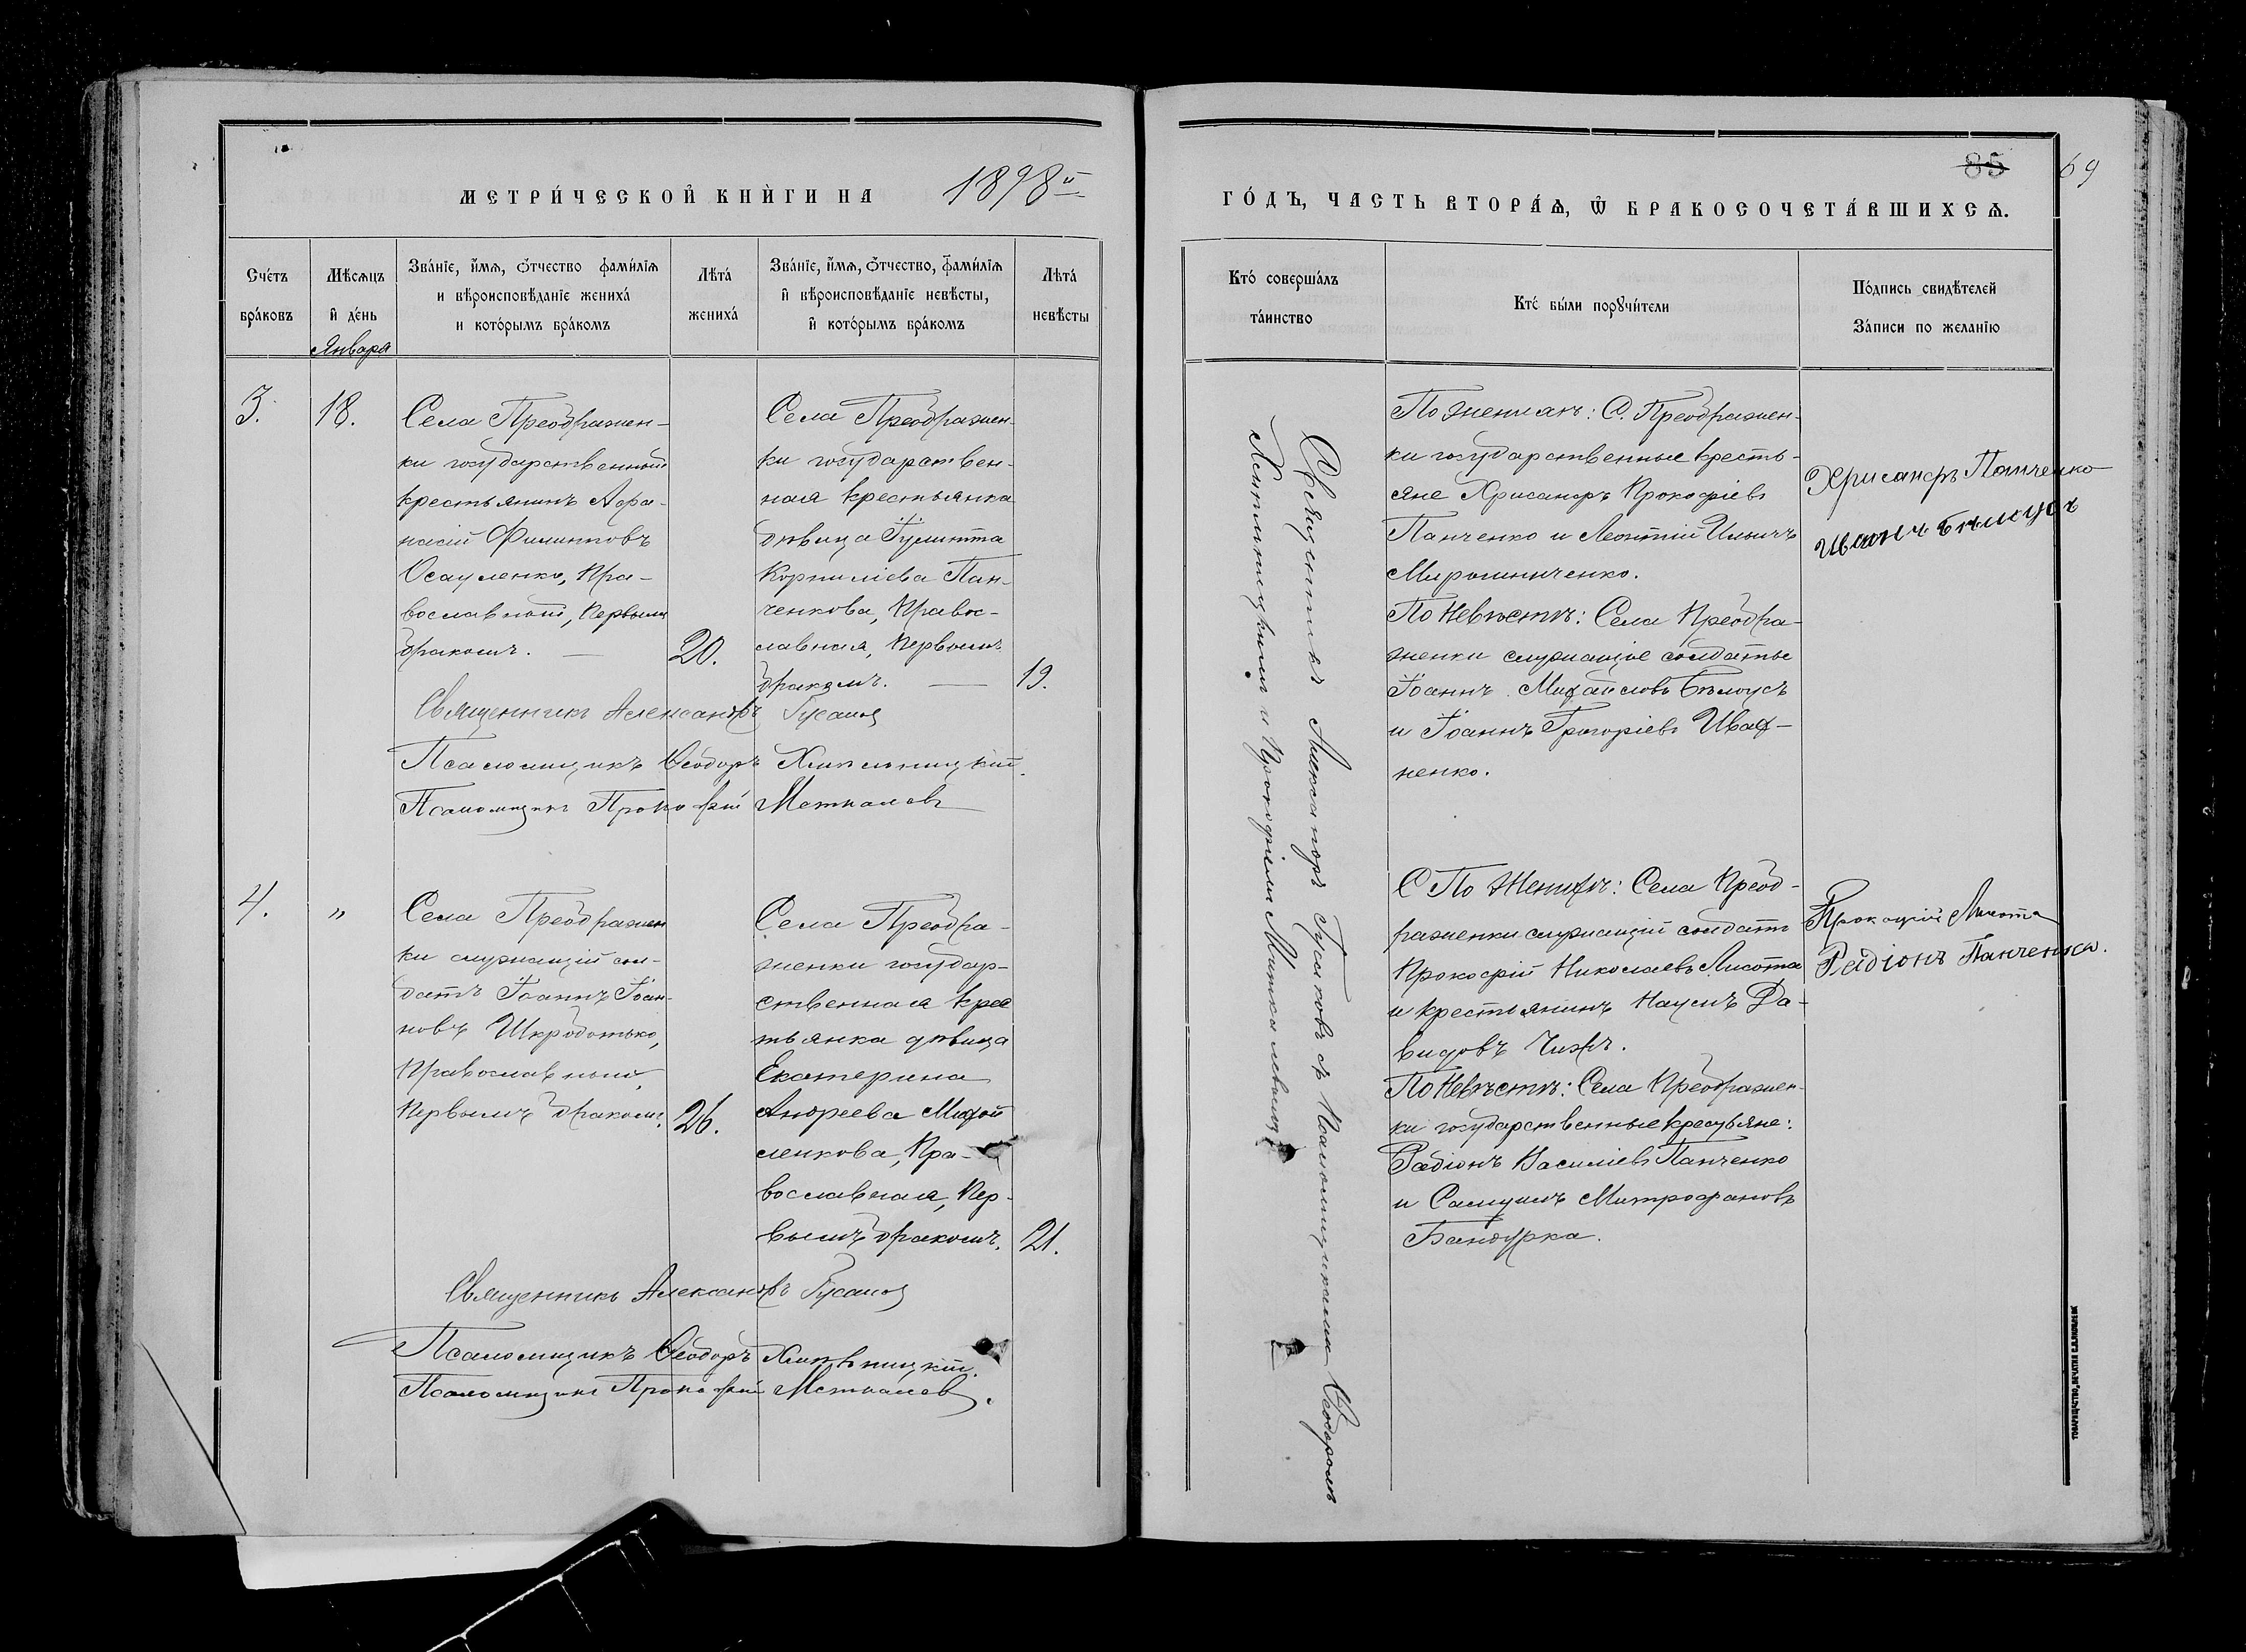 МЕТРИ́ЧЕСКОЙ КНИ́ГИ НА 1898й
Сче́тъ бра́ковъ
Мѣ́сѧцъ и҆ де́нь
Января
Зва́нїе, и҆́мѧ, ѻ҆́тчество фами́лїѧ и вѣроисповѣ́данїе жениха́ и кото́рымъ бра́комъ
Лѣта́ жениха́
Зва́нїе, и҆́мѧ, ѻ҆́тчество, фами́лїѧ и҆ вѣроисповѣ́данїе невѣ́сты, и҆ кото́рымъ бра́комъ
Лѣта́ невѣ́сты
3.
18.
Села Преображен-
ки государственный
крестьянинъ Афа-
насій Филиповъ
Осауленко, Пра-
вославный, Первымъ
бракомъ. —
20.
Села Преображен-
ки государствен-
ная крестьянка
дѣвица Іулитта
Корниліева Пан-
ченкова, Правос-
лавная, Первымъ
бракомъ. —
19.
Священникъ Александръ Гусаковъ
Псаломщикъ Ѳеодоръ Хмѣльницкій.
Псаломщикъ Прокофій Меткалевъ
4.
"
Села Преображен
ки служащій сол-
датъ Іоаннъ Іоан-
новъ Шкроботько,
Православный,
Первымъ бракомъ.
26.
Села Преобра-
женки государ-
ственная крес
тьянка дѣвица
Екатерина
Андреева Михай
ленкова, Пра-
вославная, Пер-
вымъ бракомъ.
21.
Священникъ Александръ Гусаковъ
Псаломщикъ Ѳеодоръ Хмѣльницкій.
Псаломщикъ Прокофій Меткалевъ.
85
69
ГО́ДЪ, ЧАСТЬ ВТОРА́Ѧ, Ѽ БРАКОСОЧЕТА́ВШИХСѦ.
Кто́ соверша́лъ та́инство
Кто́ бы́ли порꙋчи́тели
По́дпись свидѣ́телей За́писи по жела́нїю
Священникъ Александръ Гусаковъ съ Псаломщиками Ѳеодоромъ
Хмѣльницкимъ и Прокофіемъ Меткалевымъ
По Женихѣ: С. Преображен-
ки государственные кресть-
яне Хрисанфъ Прокофіевъ
Панченко и Леонтій Ильичъ
Мирошниченко.
По Невѣстѣ: Села Преобра-
женки служащіе солдаты
Іоаннъ Михайловъ Бѣлоусъ
и Іоаннъ Григоріевъ Ивах-
ненко.
Хрисанфъ Панченко
Иванъ Бѣлоусъ
С По Женихѣ: Села Преоб-
раженки служащій солдатъ
Прокофій Николаевъ Лисота
и крестьянинъ Наумъ Да-
видовъ Чижъ.
По Невѣстѣ: Села Преображен-
ки государственные крестьяне:
Радіонъ Василіевъ Панченко
и Самуилъ Митрофановъ
Бандурка.
Прокофій Лисота
Радіонъ Панченко.